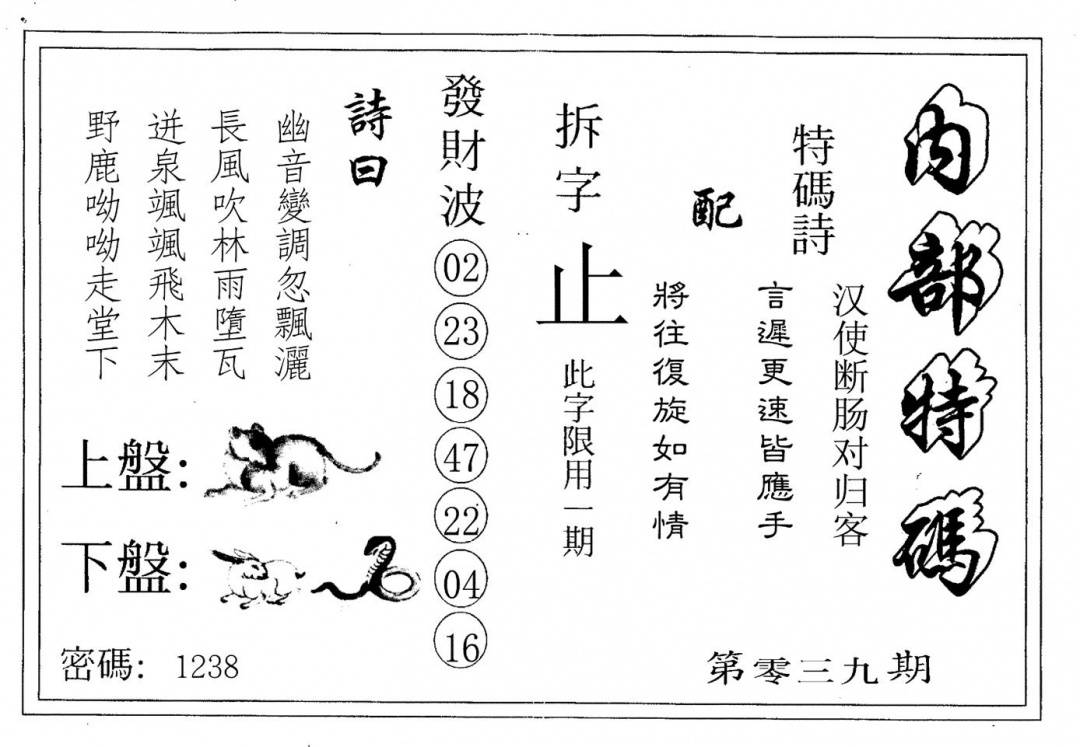 內部特碼
特碼詩
汉使断肠对归客
言遲更速皆應手
配
將往復旋如有情
拆字
止
此字限用一期
發財波
02
23
18
47
22
04
16
詩曰
幽音變調忽飄灑
長風吹林雨墮瓦
迸泉颯颯飛木末
野鹿呦呦走堂下
上盤：
下盤：
密碼： 1238
第零三九期